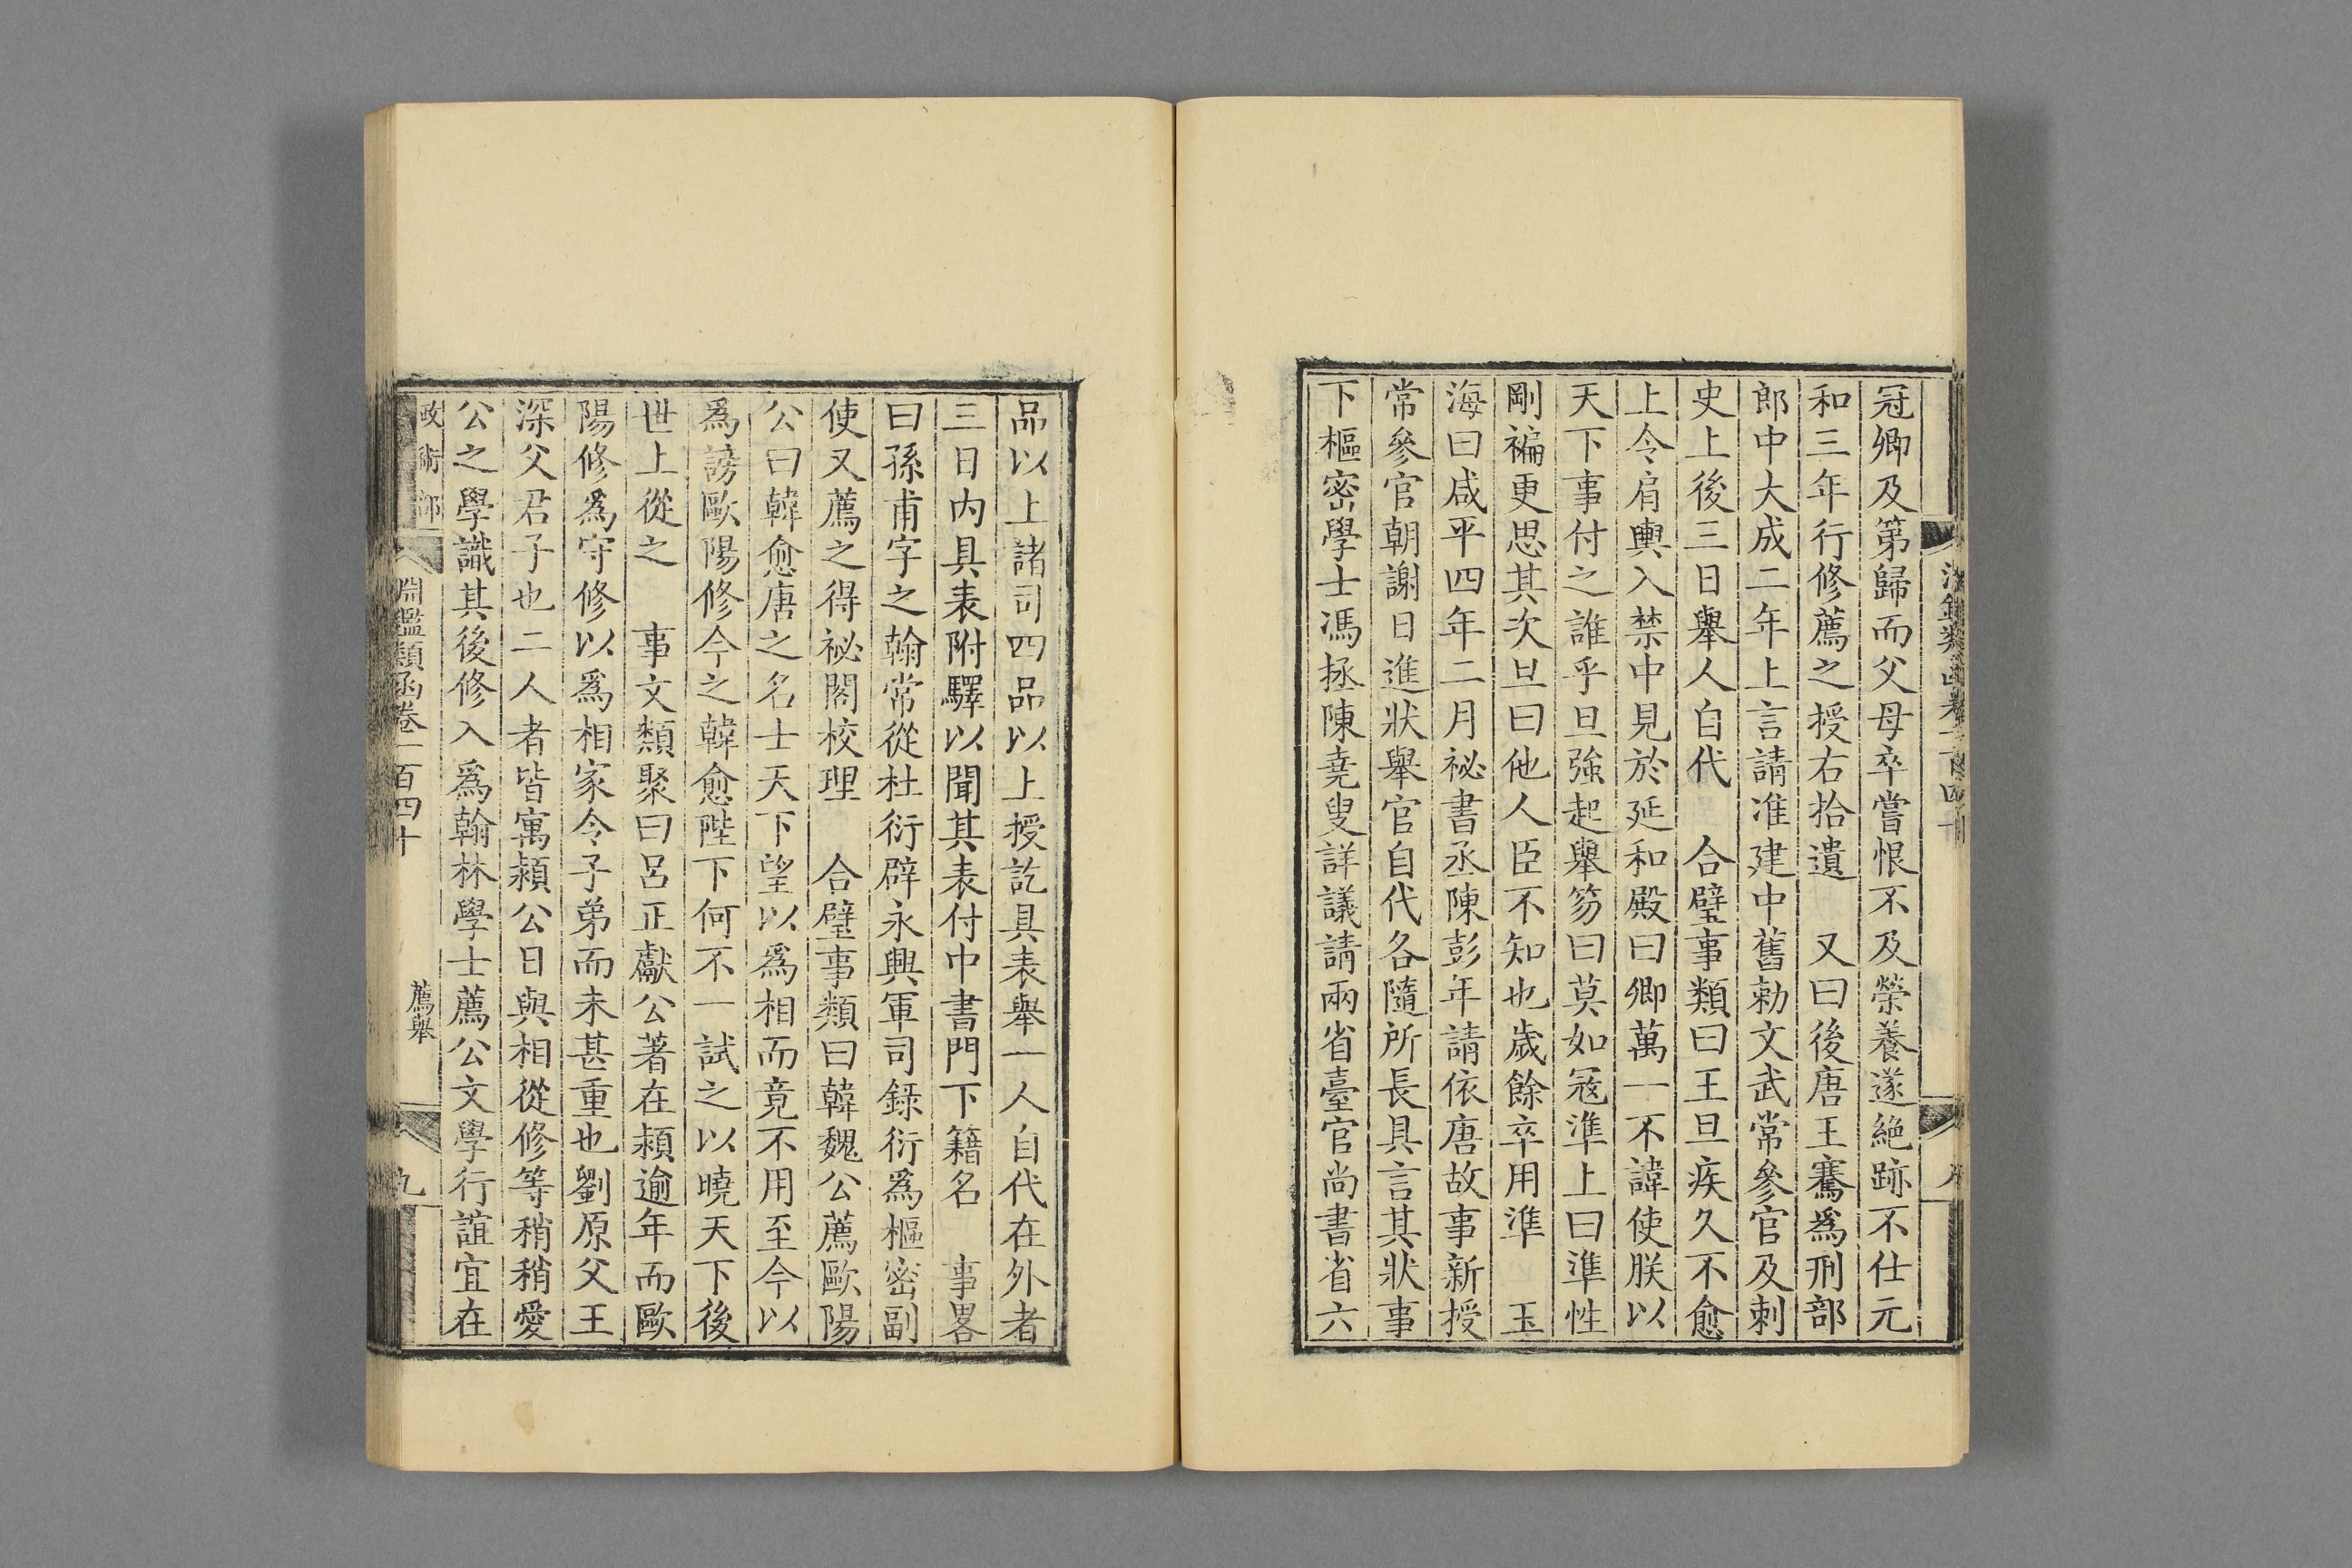 冠卿及第歸而父母卒嘗恨不及榮養遂絶跡不仕元
和三年行修薦之授右拾遺　又曰後唐王騫爲刑部
郎中大成二年上言請准建中舊勑文武常參官及刺
史上後三日舉人自代　合璧事類曰王旦疾久不愈
上令肩輿入禁中見於延和殿曰卿萬一不諱使朕以
天下事付之誰乎旦強起舉笏曰莫如冦準上曰準性
剛褊更思其次旦曰他人臣不知也歲餘卒用準　玉
海曰咸平四年二月祕書丞陳彭年請依唐故事新授
常參官朝謝日進狀舉官自代各隨所長具言其狀事
下樞密學士馮拯陳堯叟詳議請兩省臺官尚書省六
品以上諸司四品以上授訖具表舉一人自代在外者
三日内具表附驛以聞其表付中書門下籍名　事畧
曰孫甫字之翰常從杜衍辟永興軍司録衍爲樞密副
使又薦之得祕閣校理　合璧事類曰韓魏公薦歐陽
公曰韓愈唐之名士天下望以爲相而竟不用至今以
爲謗歐陽修今之韓愈陛下何不一試之以曉天下後
世上從之　事文類聚曰呂正獻公著在潁逾年而歐
陽修爲守修以爲相家令子弟而未甚重也劉原父王
深父君子也二人者皆寓潁公日與相從修等稍稍愛
公之學識其後修入爲翰林學士薦公文學行誼宜在
政術部　淵鑑類函卷一百四十　薦舉　九